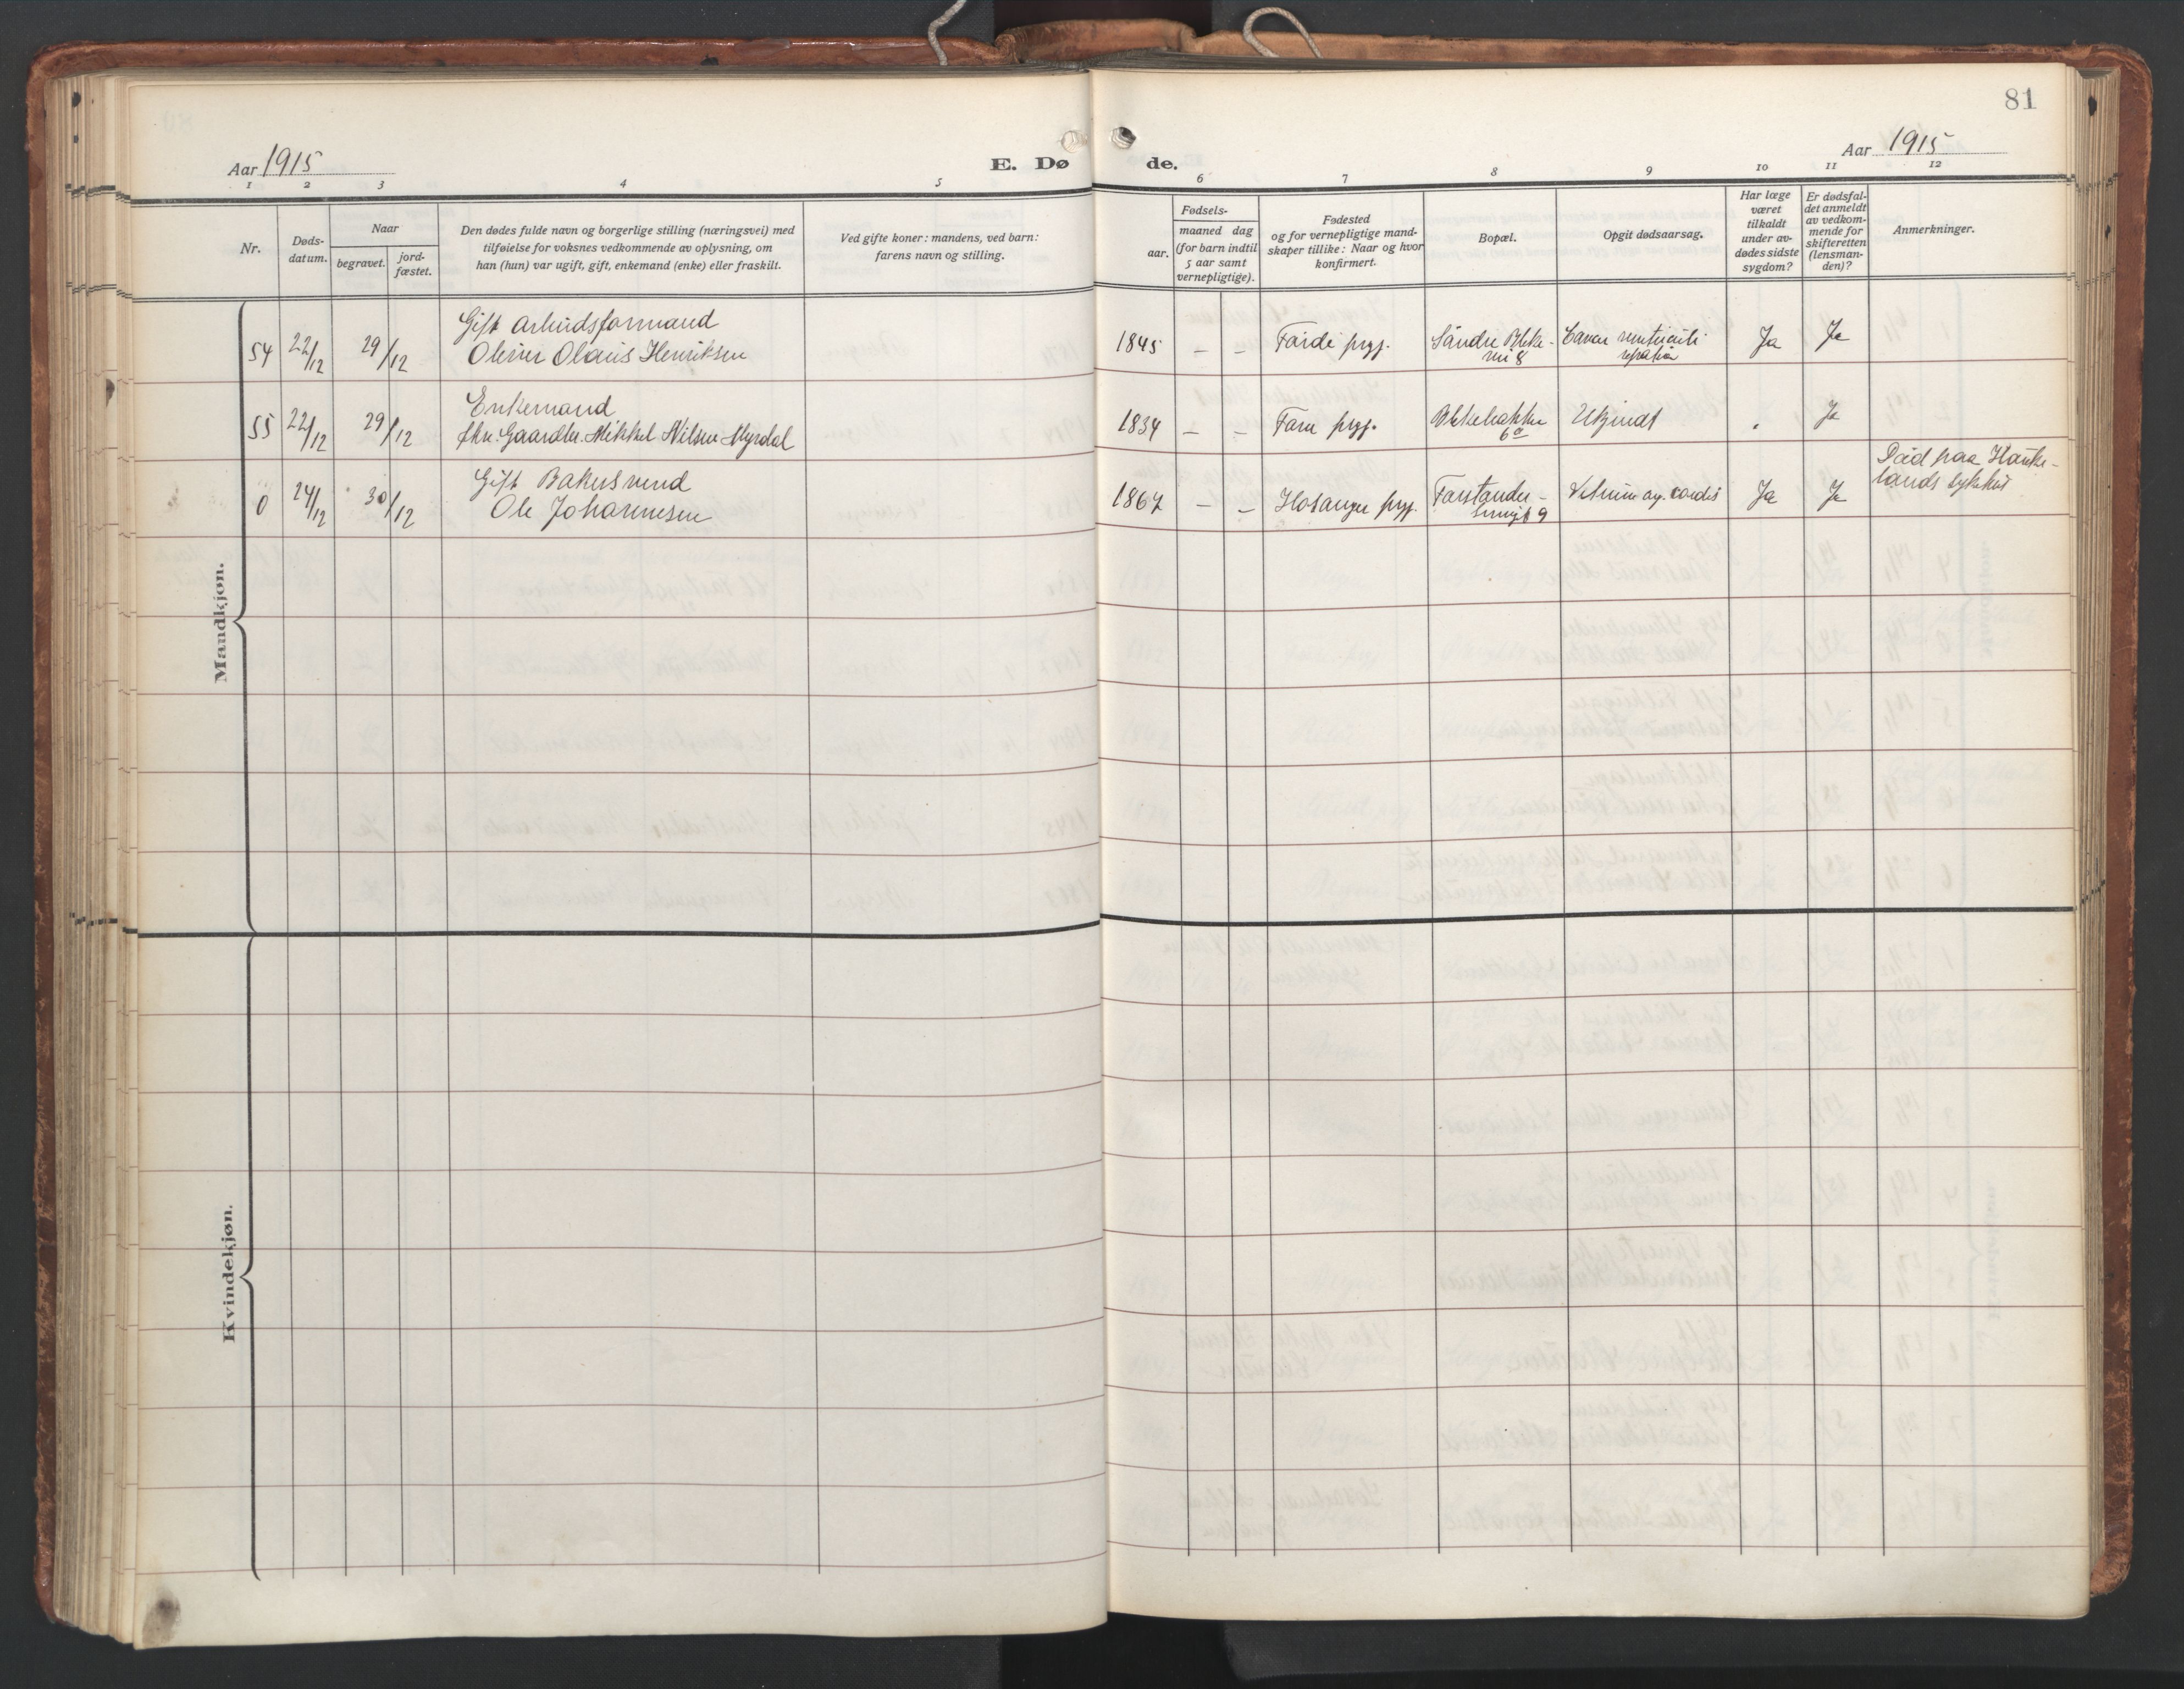 81
Aar 1915
E. Dø
de.
Aar 1915
1 2 3 4 5 6 7 8 9 10 11 12
Nr.
Døds-
datum.
Naar
begravet.
jord-
fæstet.
Den dødes fulde navn og borgerlige stilling (næringsvei) med
tilføielse for voksnes vedkommende av oplysning, om
han (hun) var ugift, gift, enkemand (enke) eller fraskilt.
Ved gifte koner: mandens, ved barn:
farens navn og stilling.
Fødsels-
aar.
maaned dag
(for barn indtil
5 aar samt
vernepligtige).
Fødested
og for vernepligtige mand-
skaper tillike: Naar og hvor
konfirmert.
Bopæl.
Opgit dødsaarsag.
Har læge
været
tilkaldt
under av-
dødes sidste
sygdom?
Er dødsfal-
det anmeldt
av vedkom-
mende for
skifteretten
(lensman-
den)?
Anmerkninger.
Mandkjøn.
54 22/12 29/12
Gift Arbeidsformand
Oliver Olaus Henriksen
1845 – – Førde prgj. Søndre Blekе-
vei 8
Cancer ventriculi
Ja Ja
55 22/12 29/12
Enkemand
fhv. Gaardbr. Mikkel Nilsen Myrdal
1834 – – Fane prgj. Blekebakken
6a
Ukjendt
" Ja
0 24/12 30/12
Gift Bakersvend
Ole Johannesen
1867 – – Hosanger prgj. Forstander-
smugt 9
Vitium org. cordis
Ja Ja
Død paa Hauke-
lands sykehus
Kvindekjøn.